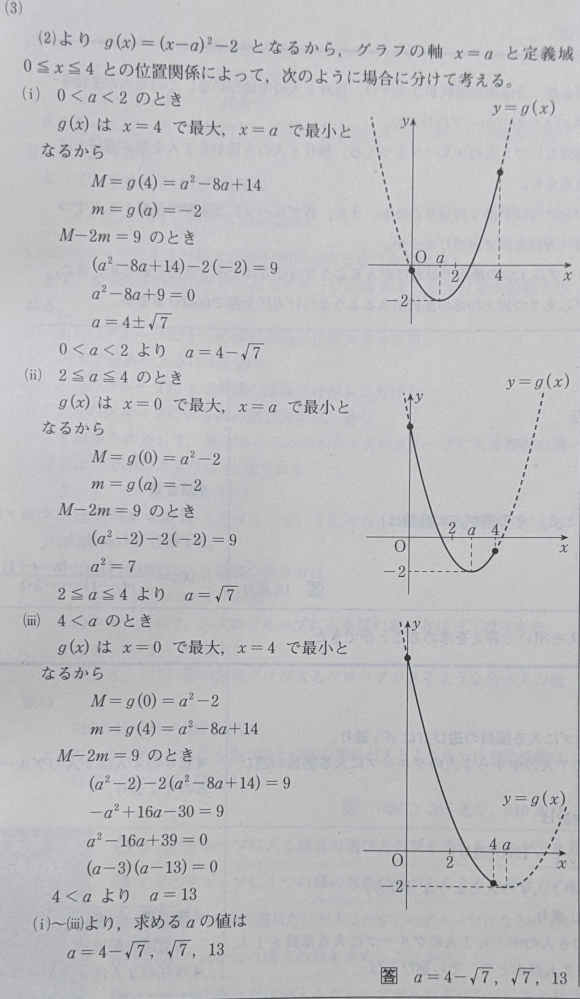 (3)
(2)より g(x)=(x-a)²-2 となるから，グラフの軸 x=a と定義域
0≦x≦4 との位置関係によって，次のように場合に分けて考える。
(i) 0<a<2 のとき
g(x) は x=4 で最大，x=a で最小と
なるから
M=g(4)=a²-8a+14
m=g(a)=-2
M-2m=9 のとき
(a²-8a+14)-2(-2)=9
a²-8a+9=0
a=4±√7
0<a<2 より a=4-√7
y
y=g(x)
O
a
2
4
x
-2
(ii) 2≦a≦4 のとき
g(x) は x=0 で最大，x=a で最小と
なるから
M=g(0)=a²-2
m=g(a)=-2
M-2m=9 のとき
(a²-2)-2(-2)=9
a²=7
2≦a≦4 より a=√7
y
y=g(x)
O
2
a
4
x
-2
(iii) 4<a のとき
g(x) は x=0 で最大，x=4 で最小と
なるから
M=g(0)=a²-2
m=g(4)=a²-8a+14
M-2m=9 のとき
(a²-2)-2(a²-8a+14)=9
-a²+16a-30=9
a²-16a+39=0
(a-3)(a-13)=0
4<a より a=13
y
y=g(x)
O
2
4
a
x
-2
(i)〜(iii)より，求める a の値は
a=4-√7，√7，13
答 a=4-√7，√7，13